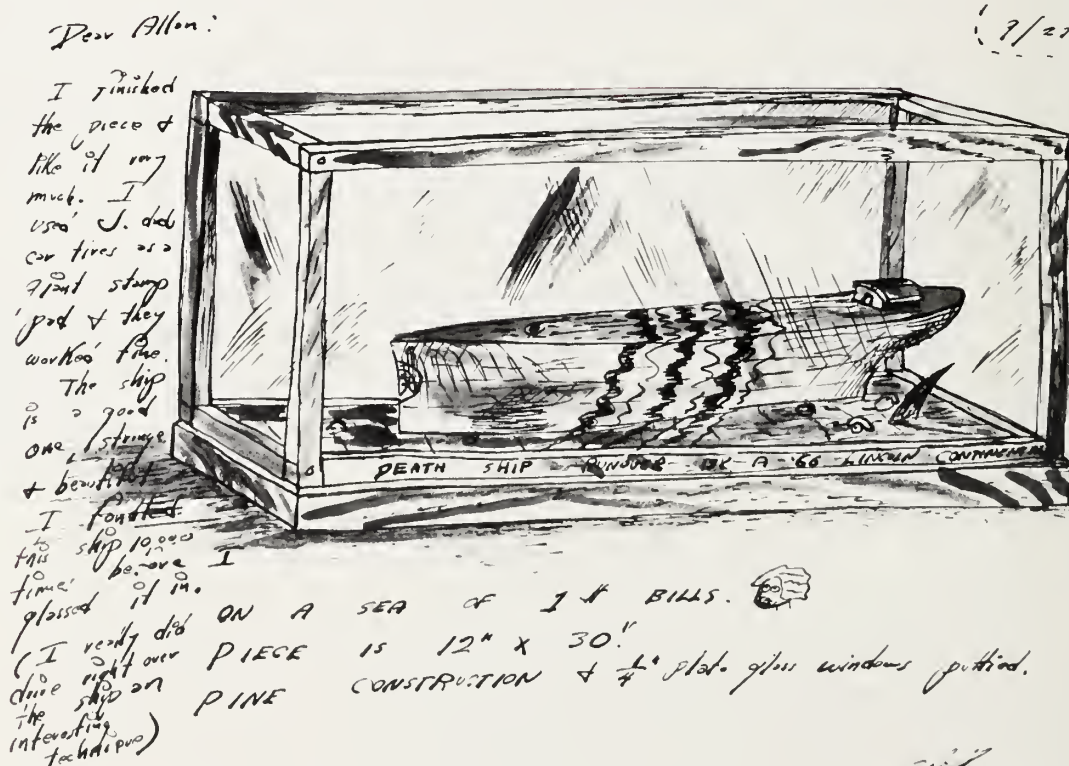 Dear Allan:
I finished
the piece &
like it very
much. I
used J. did
car tires as a
giant stamp
pad & they
worked fine.
The ship
is a good
one, strange
& beautiful
I fondled
this ship 10,000
times before I
glassed it in.
(I really did
drive right over
the ship an
interesting
technique)
DEATH SHIP RUNOVER BY A '66 LINCOLN CONTINENTAL
ON A SEA OF 1 $ BILLS.
PIECE IS 12" X 30".
PINE CONSTRUCTION & 1/4" plate glass windows puttied.